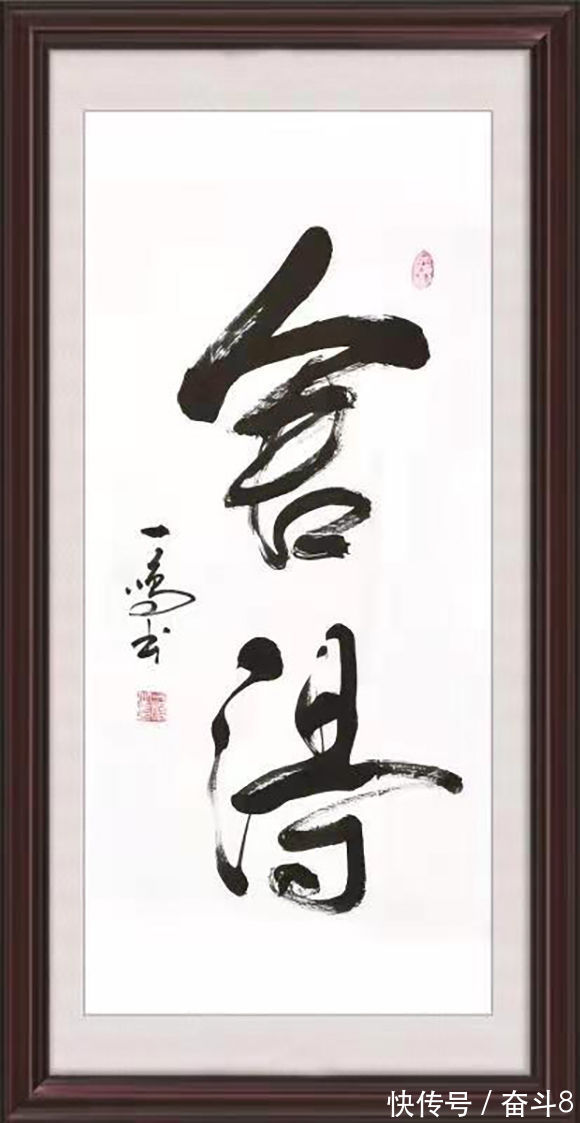 舍得
一鸣书
快传号 / 奋斗8